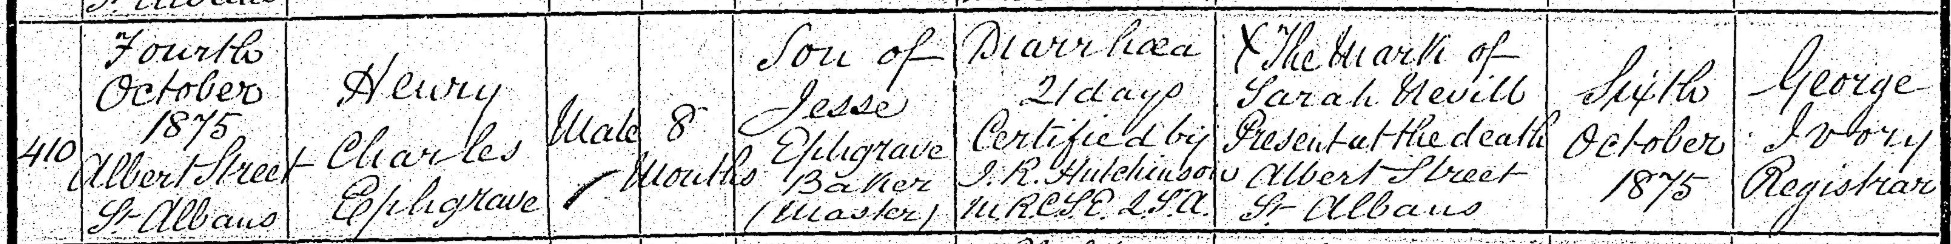 410
Fourth
October
1875
Albert Street
St Albans
Henry
Charles
Ephgrave
Male
8
Months
Son of
Jesse
Ephgrave
Baker
(Master)
Diarrhœa
21 days
Certified by
I. R. Hutchinson
M.R.C.S.E. L.S.A.
X The Mark of
Sarah Nevill
Present at the death
Albert Street
St Albans
Sixth
October
1875
George
Ivory
Registrar